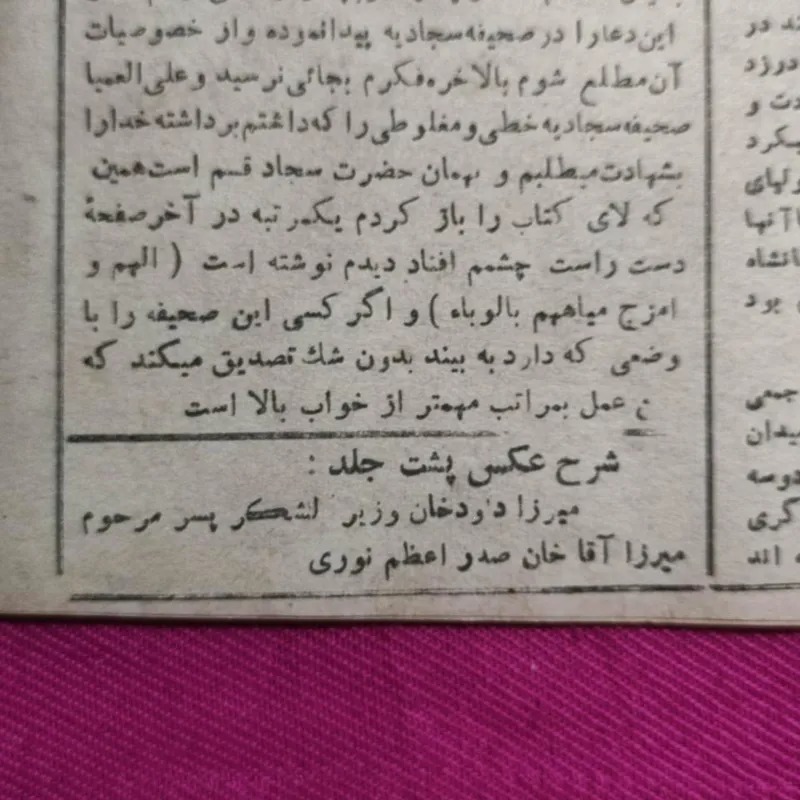 این دعا را در صحیفه سجادیه پیدا نموده و از خصوصیات
آن مطلع شوم بالاخره فکرم بجائی نرسید و علی العمیا
صحیفه سجادیه خطی و مغلوطی را که داشتم برداشته خدا را
بشهادت میطلبم و بهمان حضرت سجاد قسم است همین
که لای کتاب را باز کردم یکمرتبه در آخر صفحهٔ
دست راست چشمم افتاد دیدم نوشته است ( الهم و
امزج میاههم بالوباء ) و اگر کسی این صحیفه را با
وضعی که دارد به بیند بدون شك تصدیق میکند که
عمل بمراتب مهمتر از خواب بالا است
شرح عکس پشت جلد :
میرزا داودخان وزیر لشکر پسر مرحوم
میرزا آقا خان صدر اعظم نوری
ند در
درزد
دت و
میکرد
ولیای
با آنها
انشاه
بود
جمعی
میدان
دوسه
گری
اند